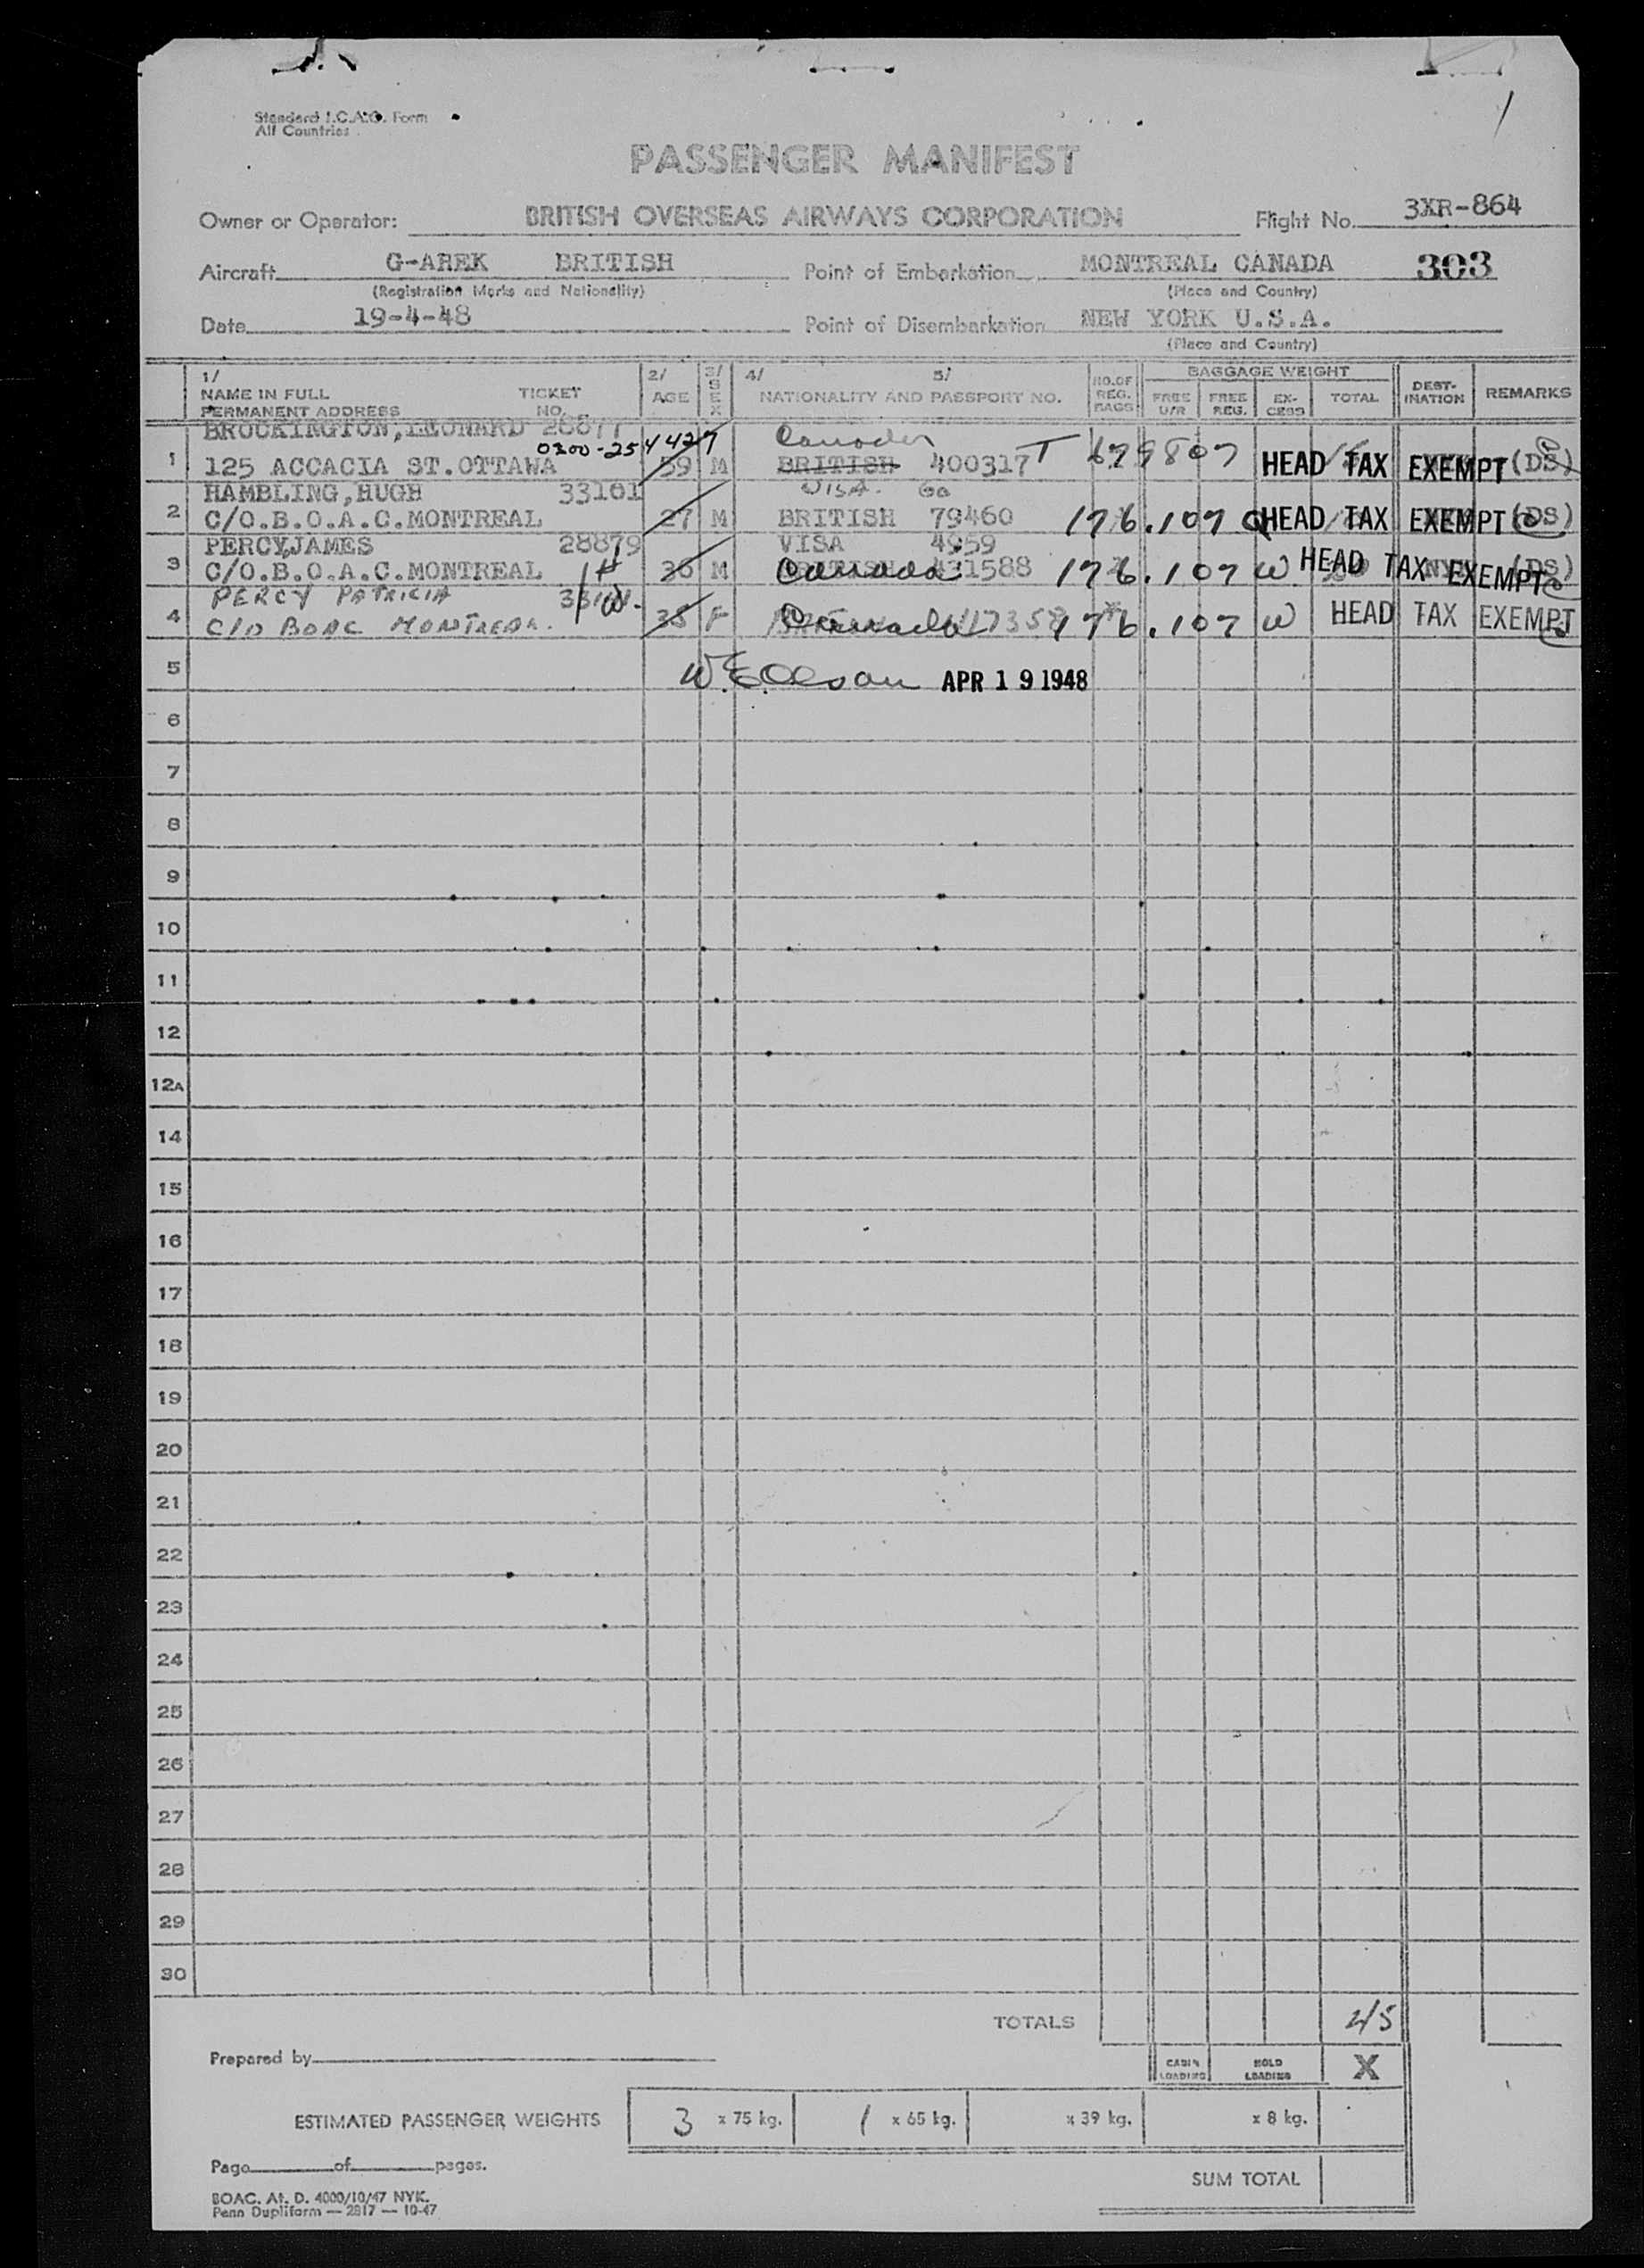 1
Standard I.C.A.O. Form
All Countries
PASSENGER MANIFEST
Owner or Operator: BRITISH OVERSEAS AIRWAYS CORPORATION Flight No. 3XR-864
Aircraft G-AREK BRITISH Point of Embarkation MONTREAL CANADA 303
(Registration Marks and Nationality) (Place and Country)
Date 19-4-48 Point of Disembarkation NEW YORK U.S.A.
(Place and Country)
1/ NAME IN FULL PERMANENT ADDRESS TICKET NO. 2/ AGE 3/ SEX 4/ 5/ NATIONALITY AND PASSPORT NO. NO.OF REG. BAGS BAGGAGE WEIGHT FREE U/R FREE REG. EX- CESS TOTAL DEST- INATION REMARKS
BROCKINGTON, LEONARD 28877
0300-254427 Canada
1 125 ACCACIA ST.OTTAWA 59 M BRITISH 400317 T 679807 HEAD TAX EXEMPT (DS)
HAMBLING,HUGH 33101 VISA. 60
2 C/O.B.O.A.C.MONTREAL 27 M BRITISH 79460 176.107 HEAD TAX EXEMPT (DS)
PERCY,JAMES 28879 VISA 4959
3 C/O.B.O.A.C.MONTREAL 36 M Canada 431588 176.107 W HEAD TAX EXEMPT (DS)
PERCY PATRICIA
4 C/O BOAC MONTREAL. 35 F Canada 176.107 W HEAD TAX EXEMPT
5 W.E.Olson APR 19 1948
6
7
8
9
10
11
12
12A
14
15
16
17
18
19
20
21
22
23
24
25
26
27
28
29
30
TOTALS
Prepared by CABIN LOADING HOLD LOADING X
ESTIMATED PASSENGER WEIGHTS 3 x 75 kg. 1 x 65 kg. x 39 kg. x 8 kg.
Page of pages.
SUM TOTAL
BOAC. At. D. 4000/10/47 NYK.
Penn Dupliform — 2817 — 10-47